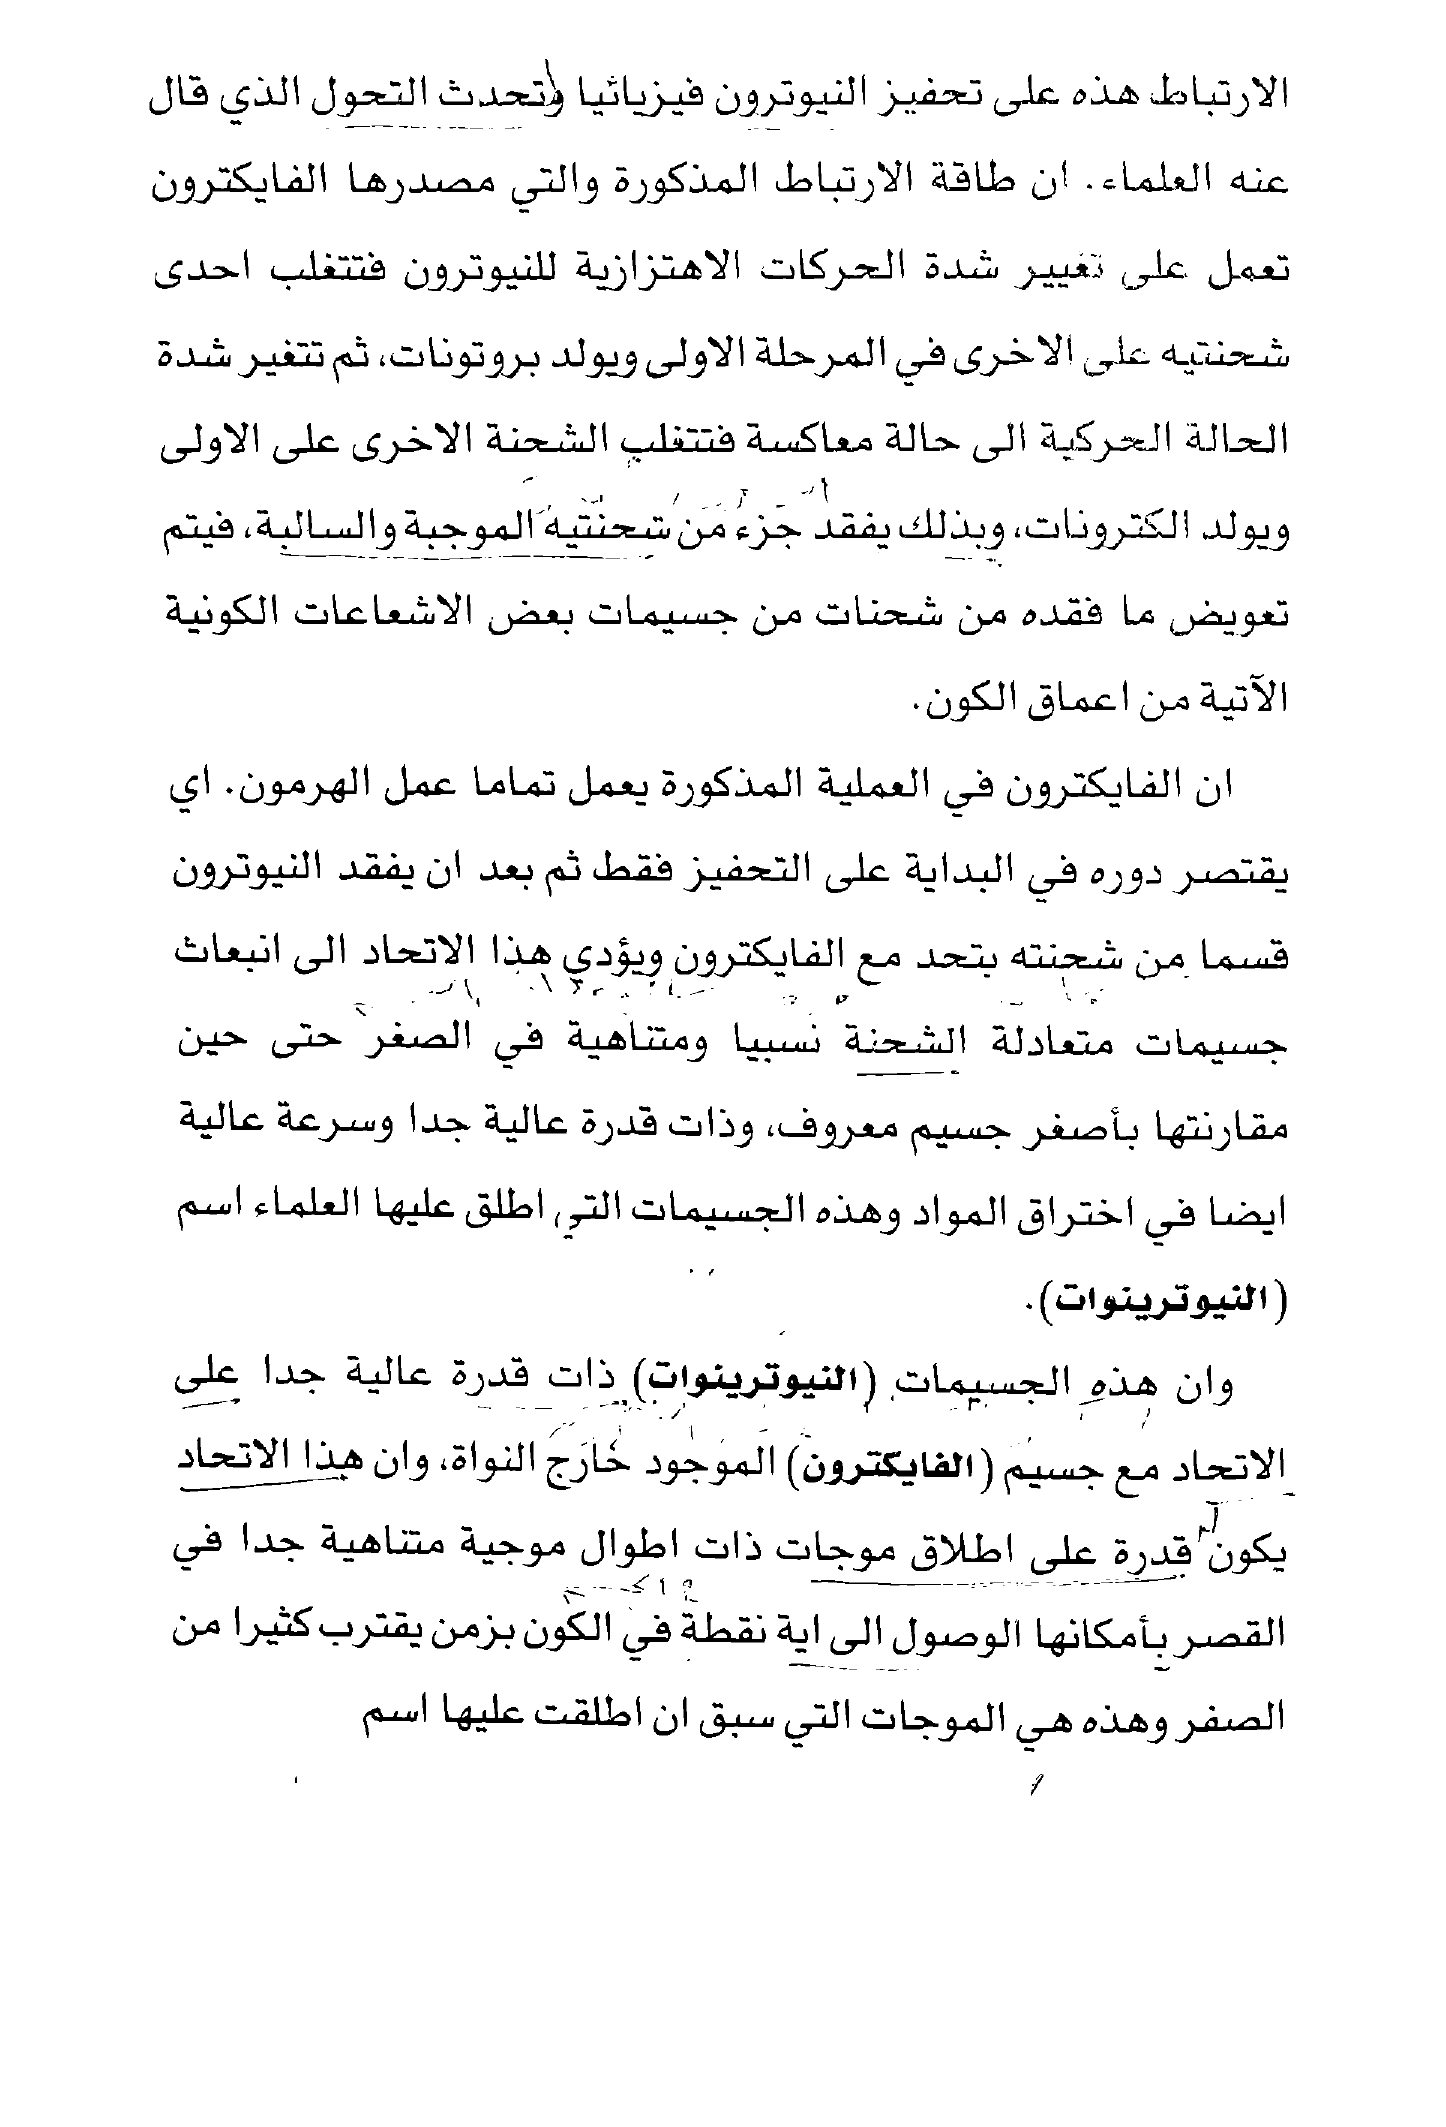 الارتباط هذه على تحفيز النيوترون فيزيائيا وتحدث التحول الذي قال
عنه العلماء. ان طاقة الارتباط المذكورة والتي مصدرها الفايكترون
تعمل على تغيير شدة الحركات الاهتزازية للنيوترون فتتغلب احدى
شحنتيه على الاخرى في المرحلة الاولى ويولد بروتونات، ثم تتغير شدة
الحالة الحركية الى حالة معاكسة فتتغلب الشحنة الاخرى على الاولى
ويولد الكترونات، وبذلك يفقد جزء من شحنتيه الموجبة والسالبة، فيتم
تعويض ما فقده من شحنات من جسيمات بعض الاشعاعات الكونية
الآتية من اعماق الكون.
ان الفايكترون في العملية المذكورة يعمل تماما عمل الهرمون. اي
يقتصر دوره في البداية على التحفيز فقط ثم بعد ان يفقد النيوترون
قسما من شحنته يتحد مع الفايكترون ويؤدي هذا الاتحاد الى انبعاث
جسيمات متعادلة الشحنة نسبيا ومتناهية في الصغر حتى حين
مقارنتها بأصغر جسيم معروف، وذات قدرة عالية جدا وسرعة عالية
ايضا في اختراق المواد وهذه الجسيمات التي اطلق عليها العلماء اسم
(النيوترينوات).
وان هذه الجسيمات (النيوترينوات) ذات قدرة عالية جدا على
الاتحاد مع جسيم (الفايكترون) الموجود خارج النواة، وان هذا الاتحاد
يكون قدرة على اطلاق موجات ذات اطوال موجية متناهية جدا في
القصر بأمكانها الوصول الى اية نقطة في الكون بزمن يقترب كثيرا من
الصفر وهذه هي الموجات التي سبق ان اطلقت عليها اسم